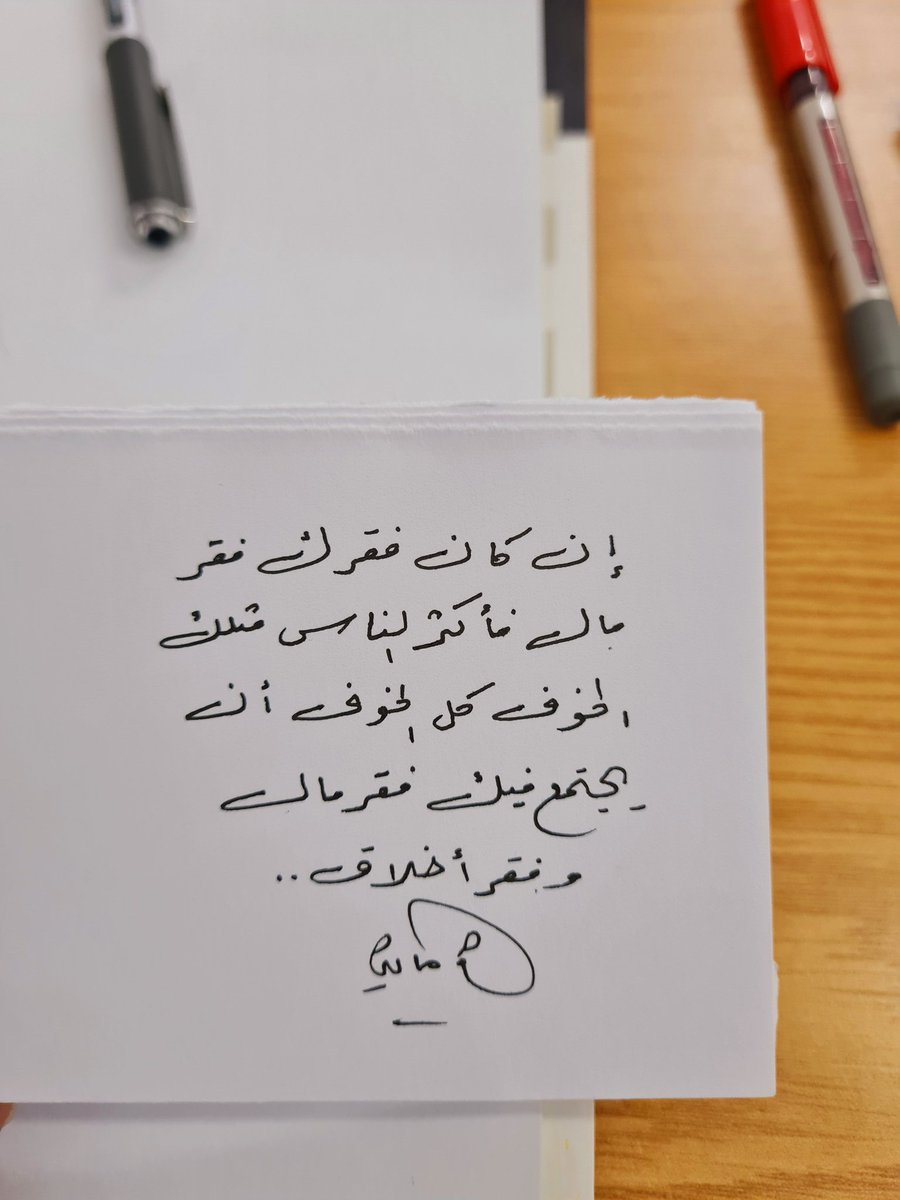 إن كان فقرك فقر
مال فأكثر الناس مثلك
الخوف كل الخوف أن
يجتمع فيك فقر مال
وفقر أخلاق..